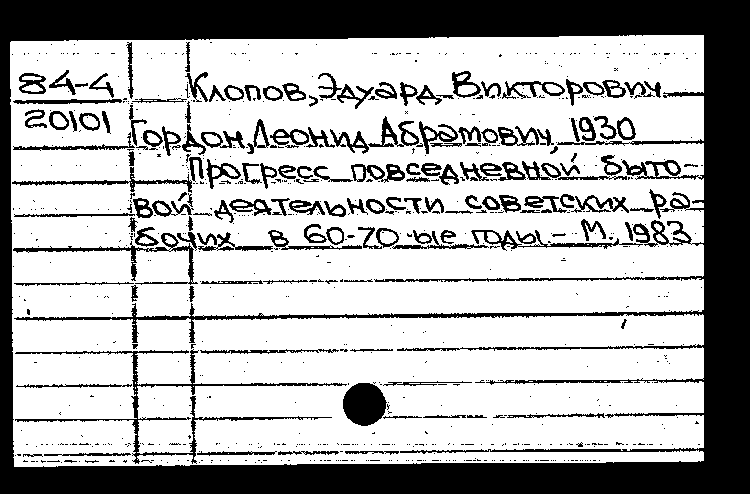 84-4
20101
Клопов, Эдуард Викторович
Гордон, Леонид Абрамович, 1930
Прогресс повседневной быто-
вой деятельности советских ра-
бочих в 60-70-ые годы - М., 1983